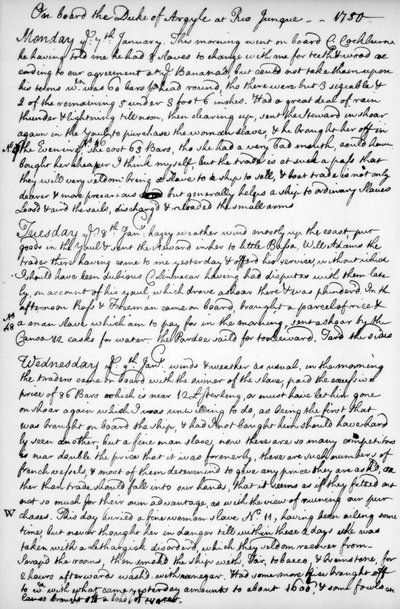 On board the Duke of Argyle at Rio Jungue - - 1750
Monday ye 7th January. This morning went on board C. Cockburne
he having told me he had 8 slaves to change with me for teeth & wood ac
cording to our agreement at ye Bananas but could not take them upon
his terms wh. was 60 bars ahead round, tho there were but 3 sizeable &
2 of the remaining 5 under 3 foot 6 inches. Had a great deal of rain
thunder & lightning till noon, then clearing up, sent the Steward in shoar
again in the Yaul to purchase the woman slave, & he brought her off in
No the Evening No 46 She cost 63 Bars, tho she had a very bad mouth, could have
bought her cheaper I think myself but the trade is at such a pass that
they will very seldom bring a Slave to a ship to sell, & boat trade is not only
dearer & more precarious but generally helps a ship to ordinary slaves
Loos'd and aird the sails, discharg'd & reloaded the small arms
Tuesday ye 8th Jany. hazey weather wind mostly up the coast put
goods in the Yaul & sent the Steward in her to little Bassa. Will Adams the
trader there having come to me yesterday & offer'd his service, without which
I should have been dubious C. Penhecar having had disputes with them late
ly on account of his yaul, which drove ashoar there & was plunder'd. In the
afternoon Ross & Freeman came on board, brought a parcel of rice &
No
48 a man slave which am to pay for in the morning, sent ashoar by the
Canoe 12 casks for water. the Pardoe saild for to leeward. Tar'd the sides
Wednesday ye 9th Jany. winds & weather as usual, in the morning
the traders came on board with the owner of the slave, paid the excessive
price of 86 Bars which is near 12£ sterling, or must have let him gone
on shoar again which I was unwilling to do, as being the first that
was brought on board the ship, & had I not bought him should have hard
ly seen another, but a fine man slave, now there are so many competitors
is near double the price that it was formerly, there are such numbers of
french vessels, & most of them determin'd to give any price they are ask'd, ra
ther than trade should fall into our hands, that it seems as if they fitted out
not so much for their own advantage, as with the view of ruining our pur
chases. This day buried a fine woman slave No 11, having been ailing some
W time, but never thought her in danger till within these 2 days she was
taken with a lethargick disorder, which they seldom recover from.
Scrap'd the rooms, then smok'd the ship with Tar, tobacco, & Brimstone, for
2 hours afterwards wash'd with vinegar. Had some more rice brought off
to us with what came yesterday amounts to about 1600 & some fowls
Canoe brought off a load of water